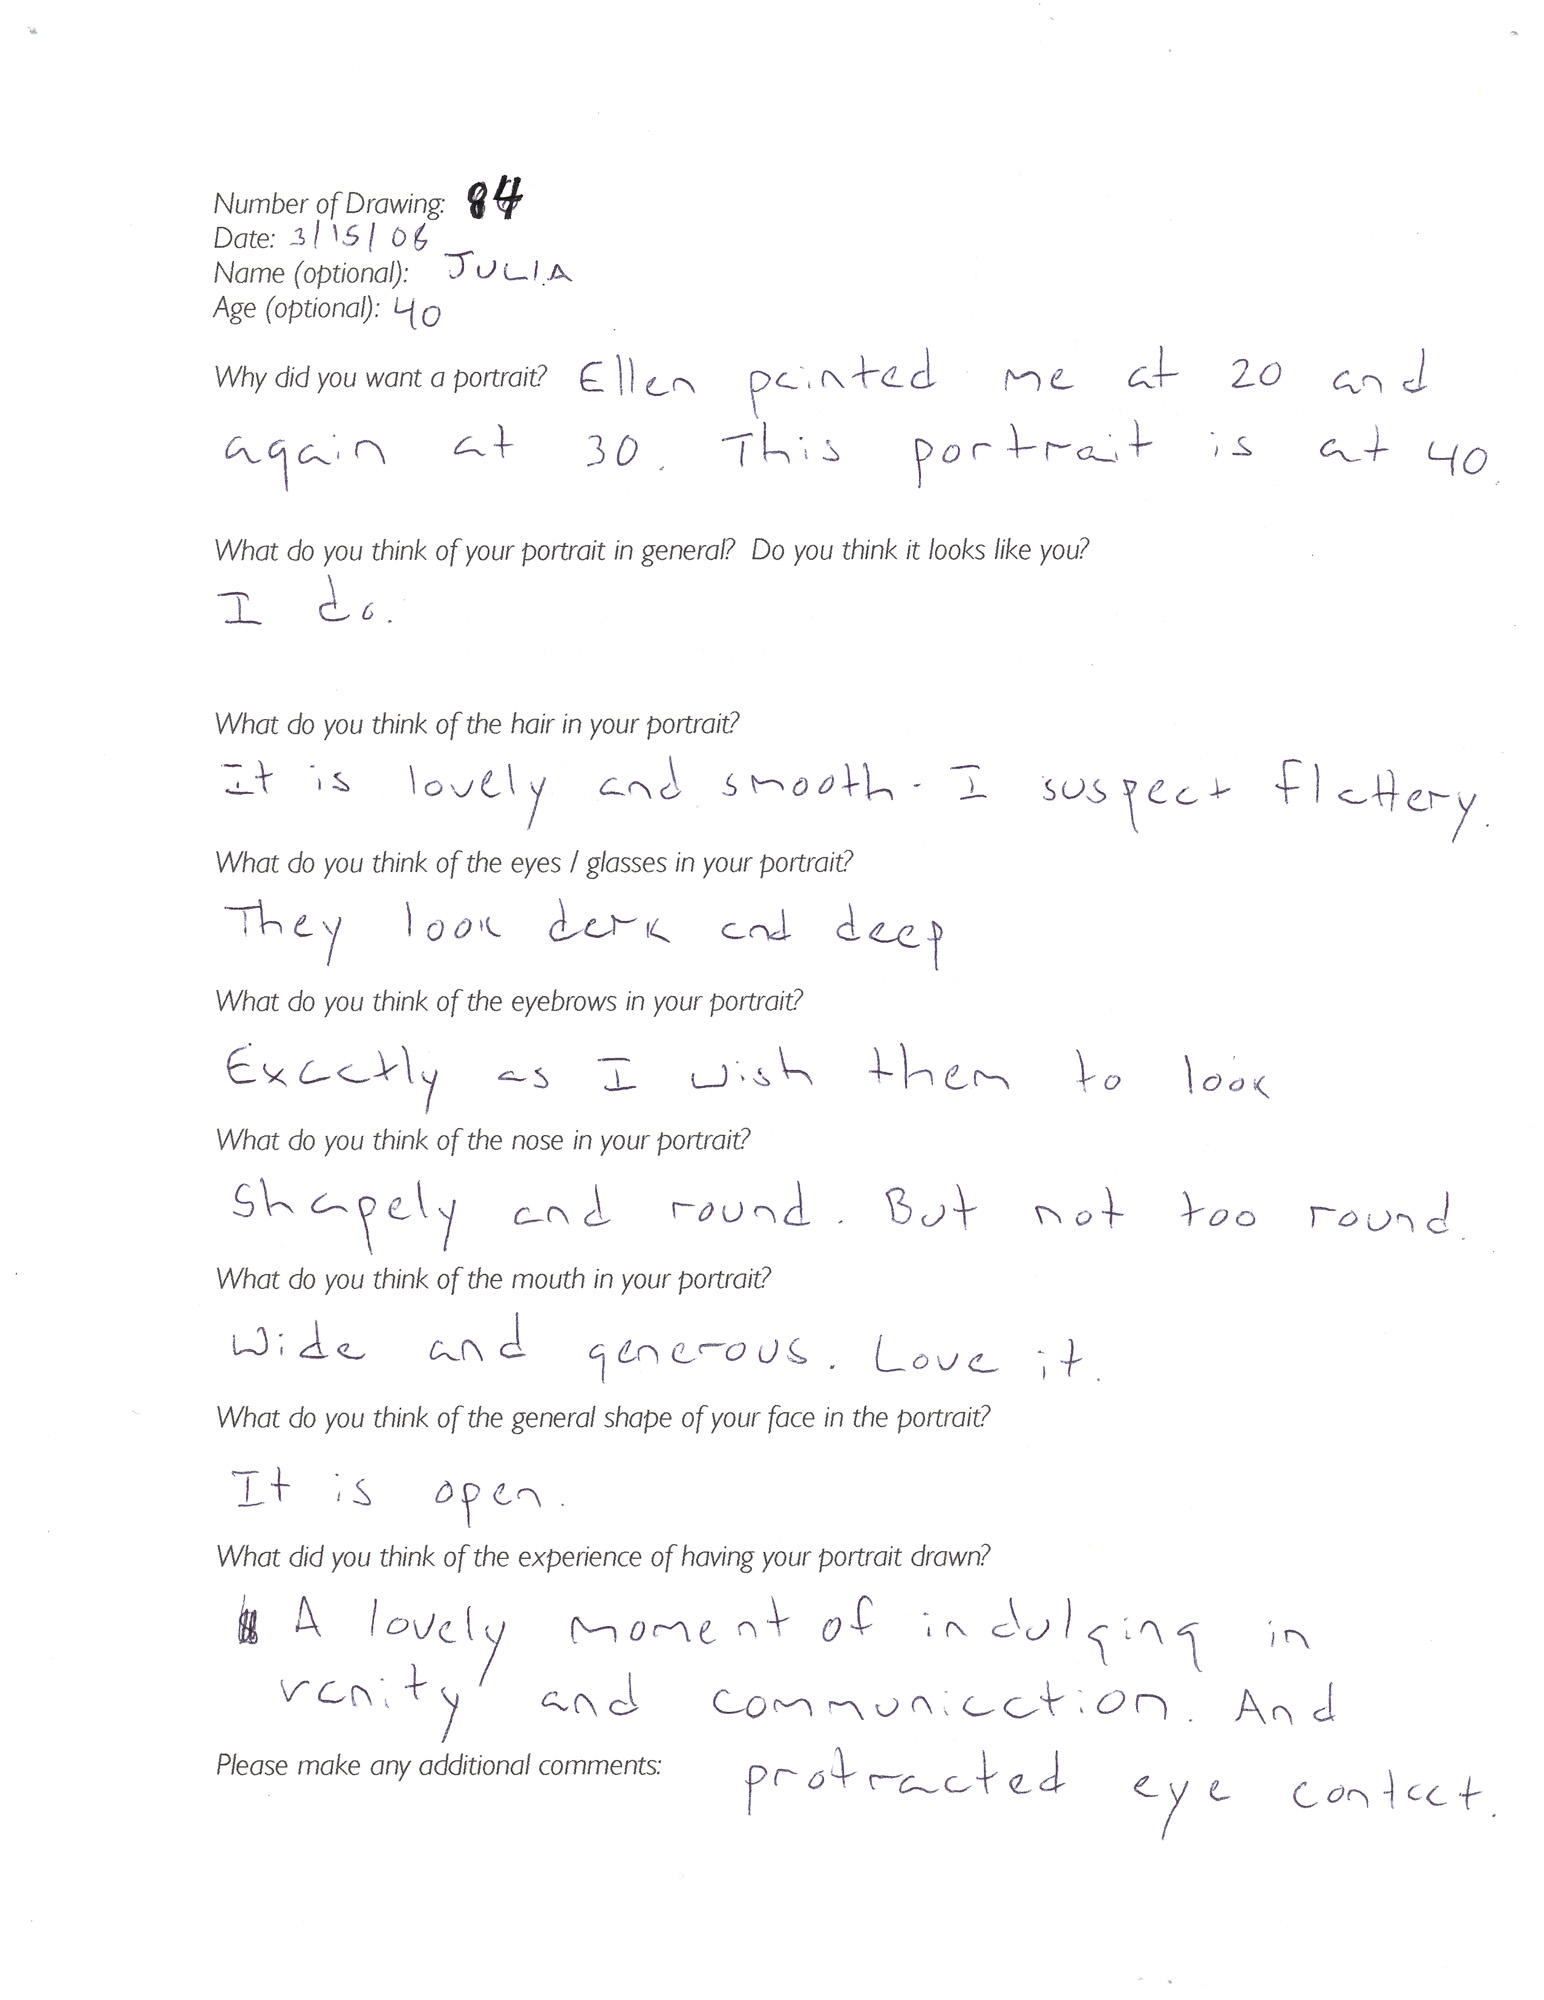 Number of Drawing: 84
Date: 3/15/06
Name (optional): JULIA
Age (optional): 40
Why did you want a portrait? Ellen painted me at 20 and
again at 30. This portrait is at 40.
What do you think of your portrait in general? Do you think it looks like you?
I do.
What do you think of the hair in your portrait?
It is lovely and smooth. I suspect flattery.
What do you think of the eyes / glasses in your portrait?
They look dark and deep
What do you think of the eyebrows in your portrait?
Exactly as I wish them to look
What do you think of the nose in your portrait?
Shapely and round. But not too round.
What do you think of the mouth in your portrait?
Wide and generous. Love it.
What do you think of the general shape of your face in the portrait?
It is open.
What did you think of the experience of having your portrait drawn?
A lovely moment of indulging in
vanity and communication. And
protracted eye contact.
Please make any additional comments: